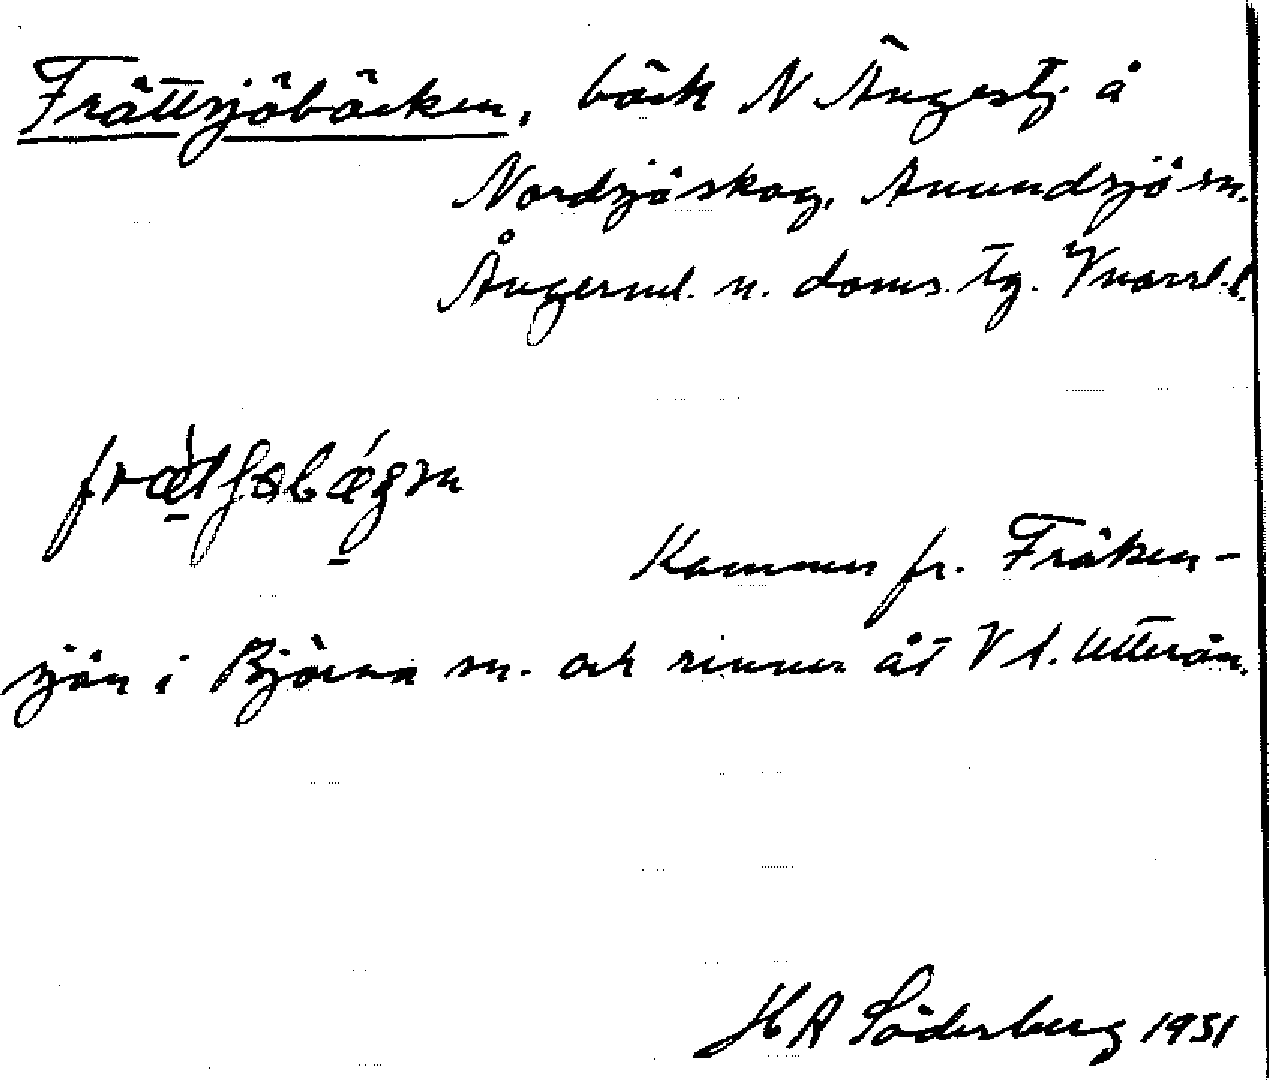 Frättsjöbäcken, bäck N Ängestj. å
Nordsjöskog, Anundsjö sn.
Ångerml. n. doms. tg. Vnorrl. l.
Kommer fr. Fräken-
sjön i Björna sn. och rinner åt V t. Utterån.
H A Söderberg 1951